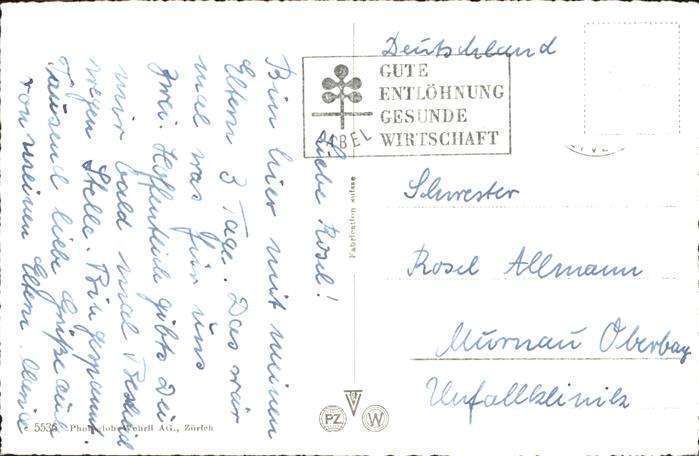 Liebe Rosel!
Bin hier mit meinen
Eltern 3 Tage. Das wär
mal was für uns
zwei. Hoffentlich gibts Du
mir bald mal Bescheid
wegen Stelle. Bin gespannt.
Tausend liebe Grüße auch
von meinen Eltern.
Deutschland
GUTE
ENTLÖHNUNG
GESUNDE
WIRTSCHAFT
LABEL
Schwester
Rosel Allmann
Murnau Oberbay
Unfallklinik
Fabrication suisse
PZ
W
5538 Photoglob-Wehrli AG., Zürich